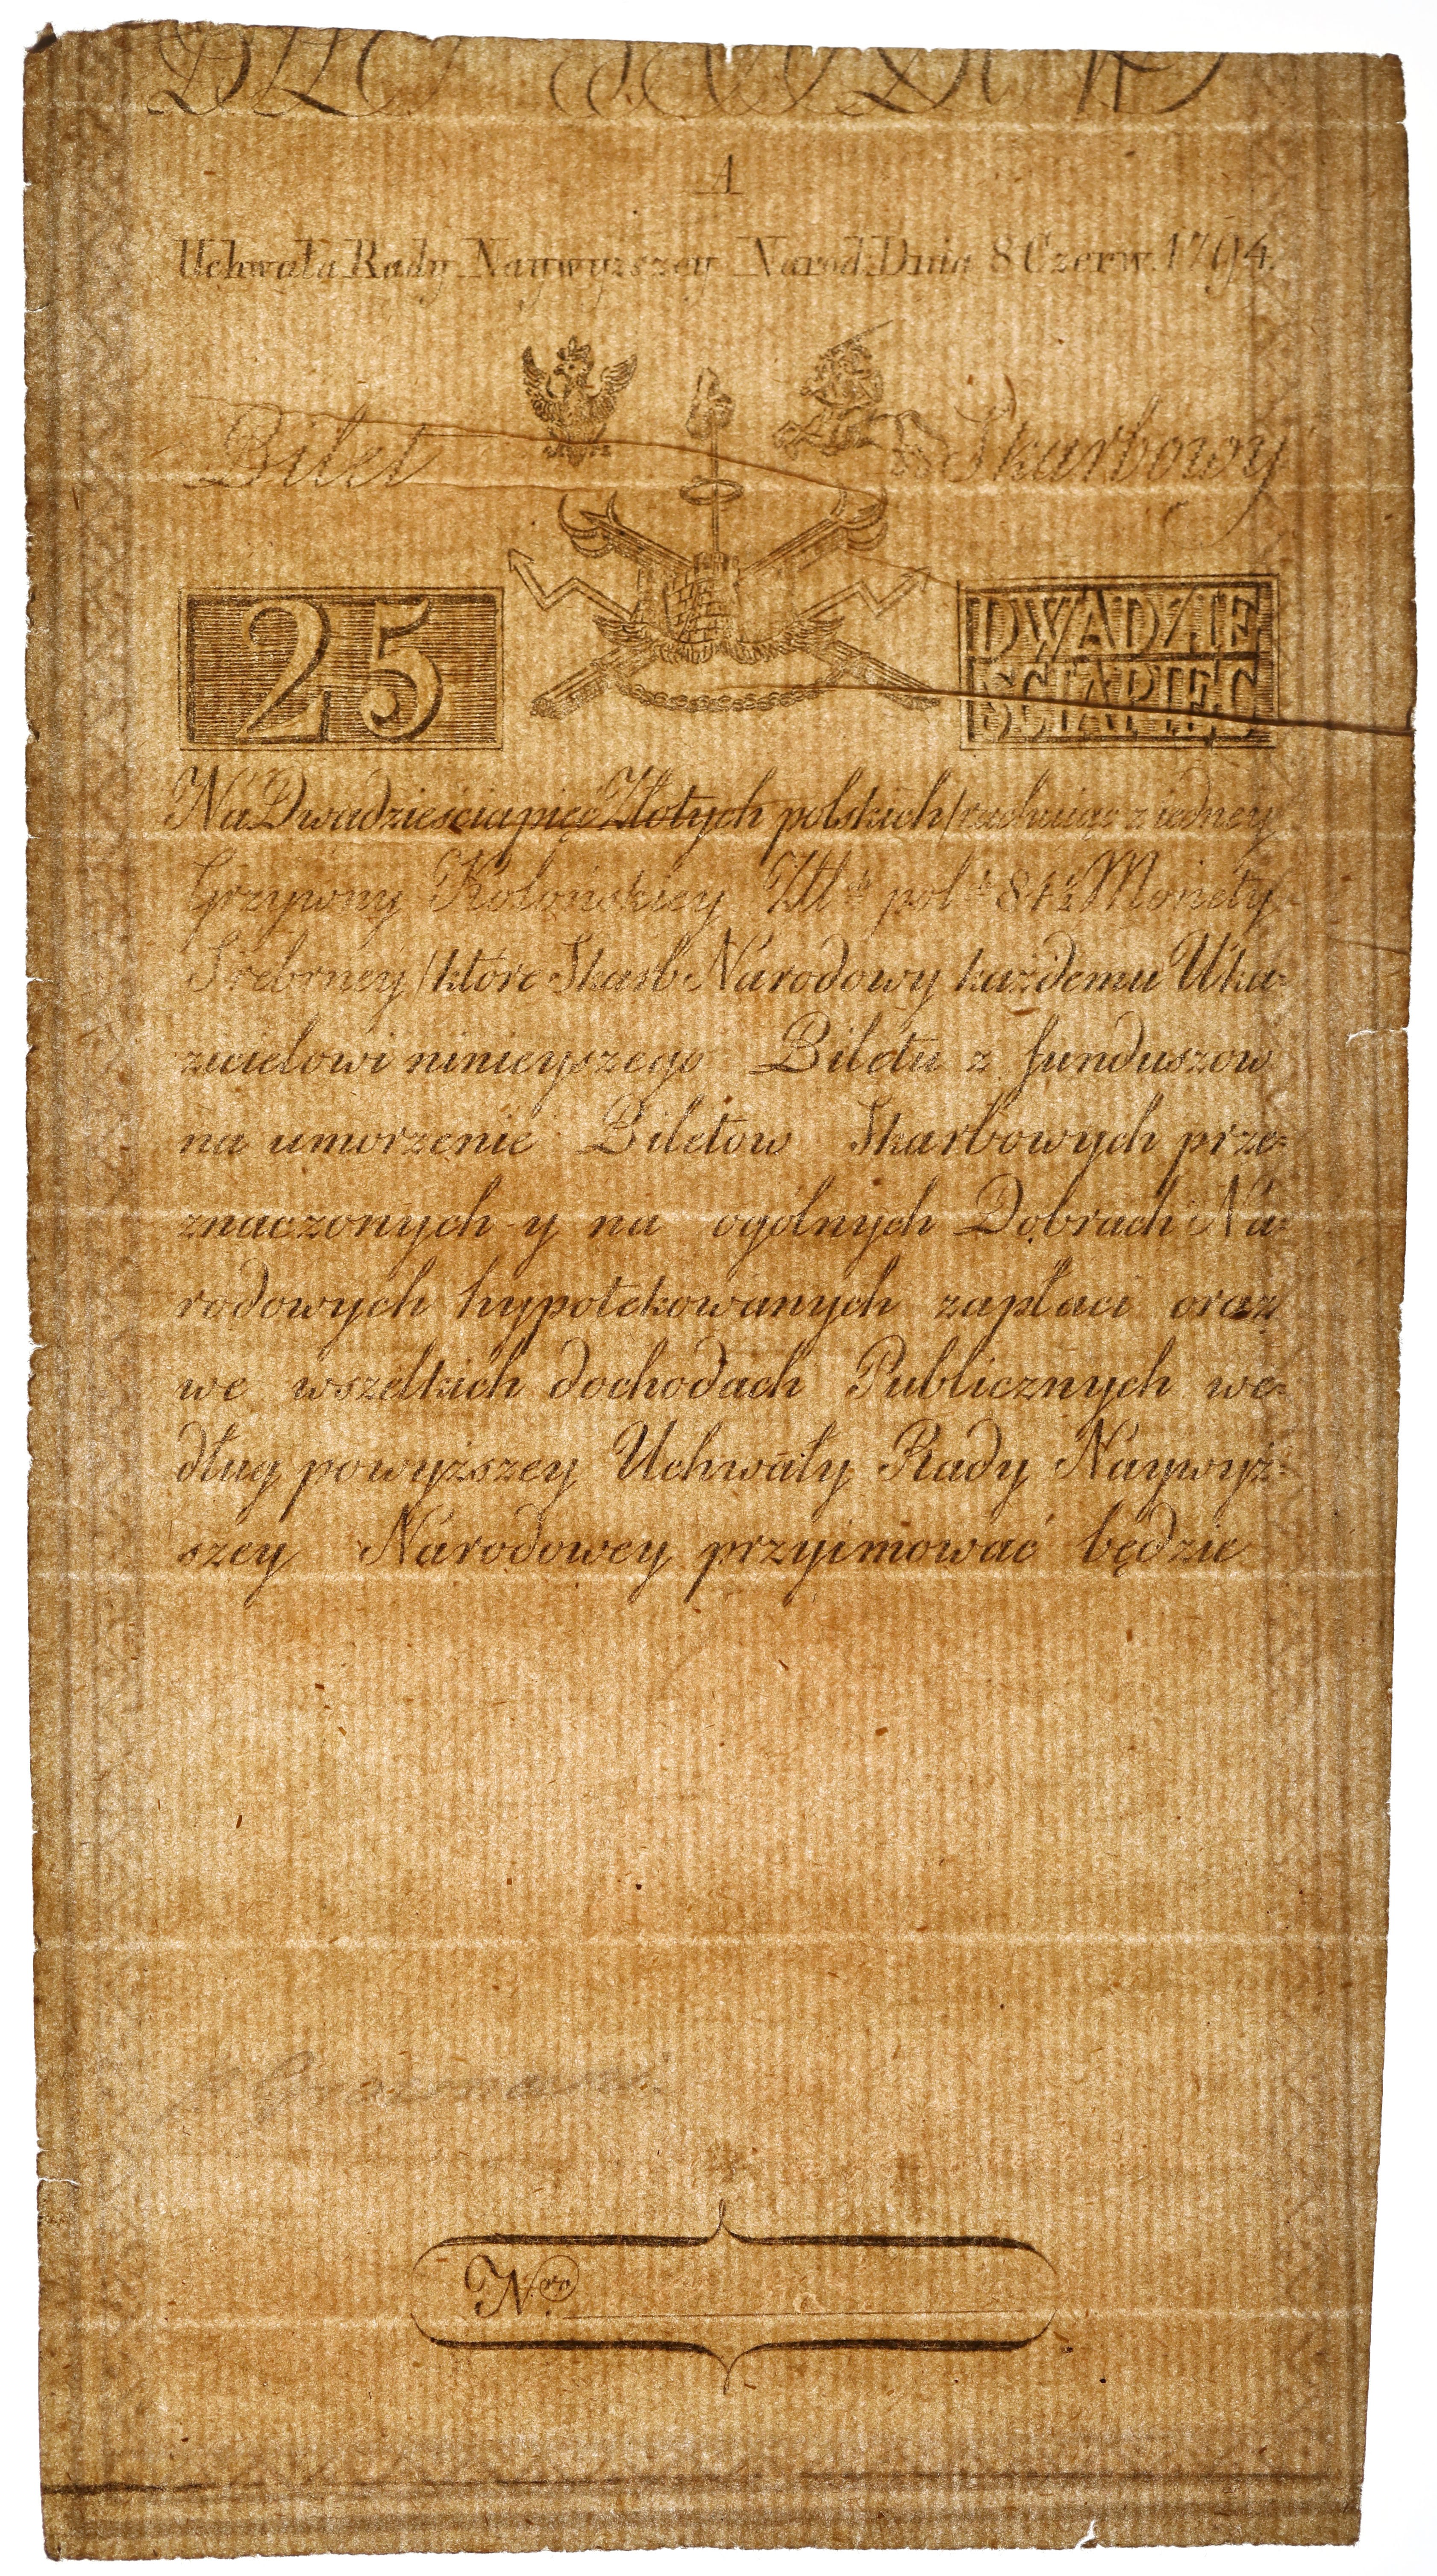 A
Uchwała Rady Naywyzszey Narod: Dnia 8 Czerw. 1794.
Bilet Skarbowy
25
DWADZIE
SCIAPIĘC
Na Dwadzieścia pięć Złotych polskich/rachuiąc z iedney
Grzywny Kolońskiey Złł.ch pol.ch 84½ Monety
Srebrney/które Skarb Narodowy każdemu Uka=
zicielowi ninieyszego Biletu z funduszow
na umorzenie Biletow Skarbowych prze=
znaczonych y na ogólnych Dobrach Na=
rodowych hypotekowanych zapłaci oraz
we wszelkich dochodach Publicznych we=
dług powyższey Uchwały Rady Naywyż=
szey Narodowey przyimować będzie
N.ro